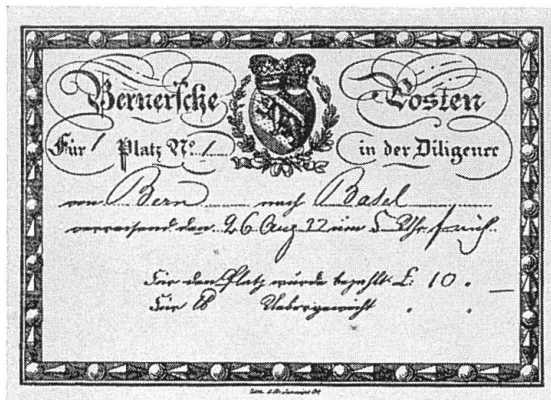 Bernersche Posten
Für 1 Platz No. 1 in der Diligence
von Bern nach Basel
verreisend den 26 Aug 22 um 5 Uhr früh.
Für den Platz wurde bezahlt £. 10.
Für ℔ Uebergewicht